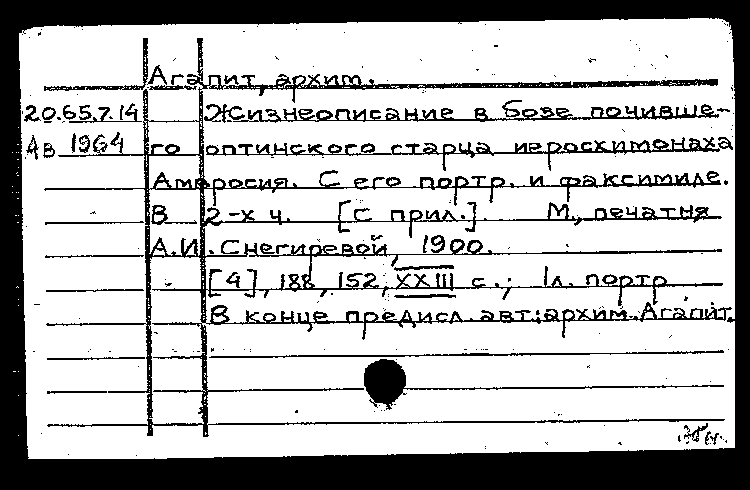 Агапит, архим.
20.65.7.14 Жизнеописание в бозе почивше-
Ав 1964 го оптинского старца иеросхимонаха
Амвросия. С его портр. и факсимиле.
В 2-х ч. [С прил.]. М., печатня
А.И. Снегиревой, 1900.
[4], 188, 152, XXIII с.; 1л. портр
В конце предисл. авт.: архим. Агапит.